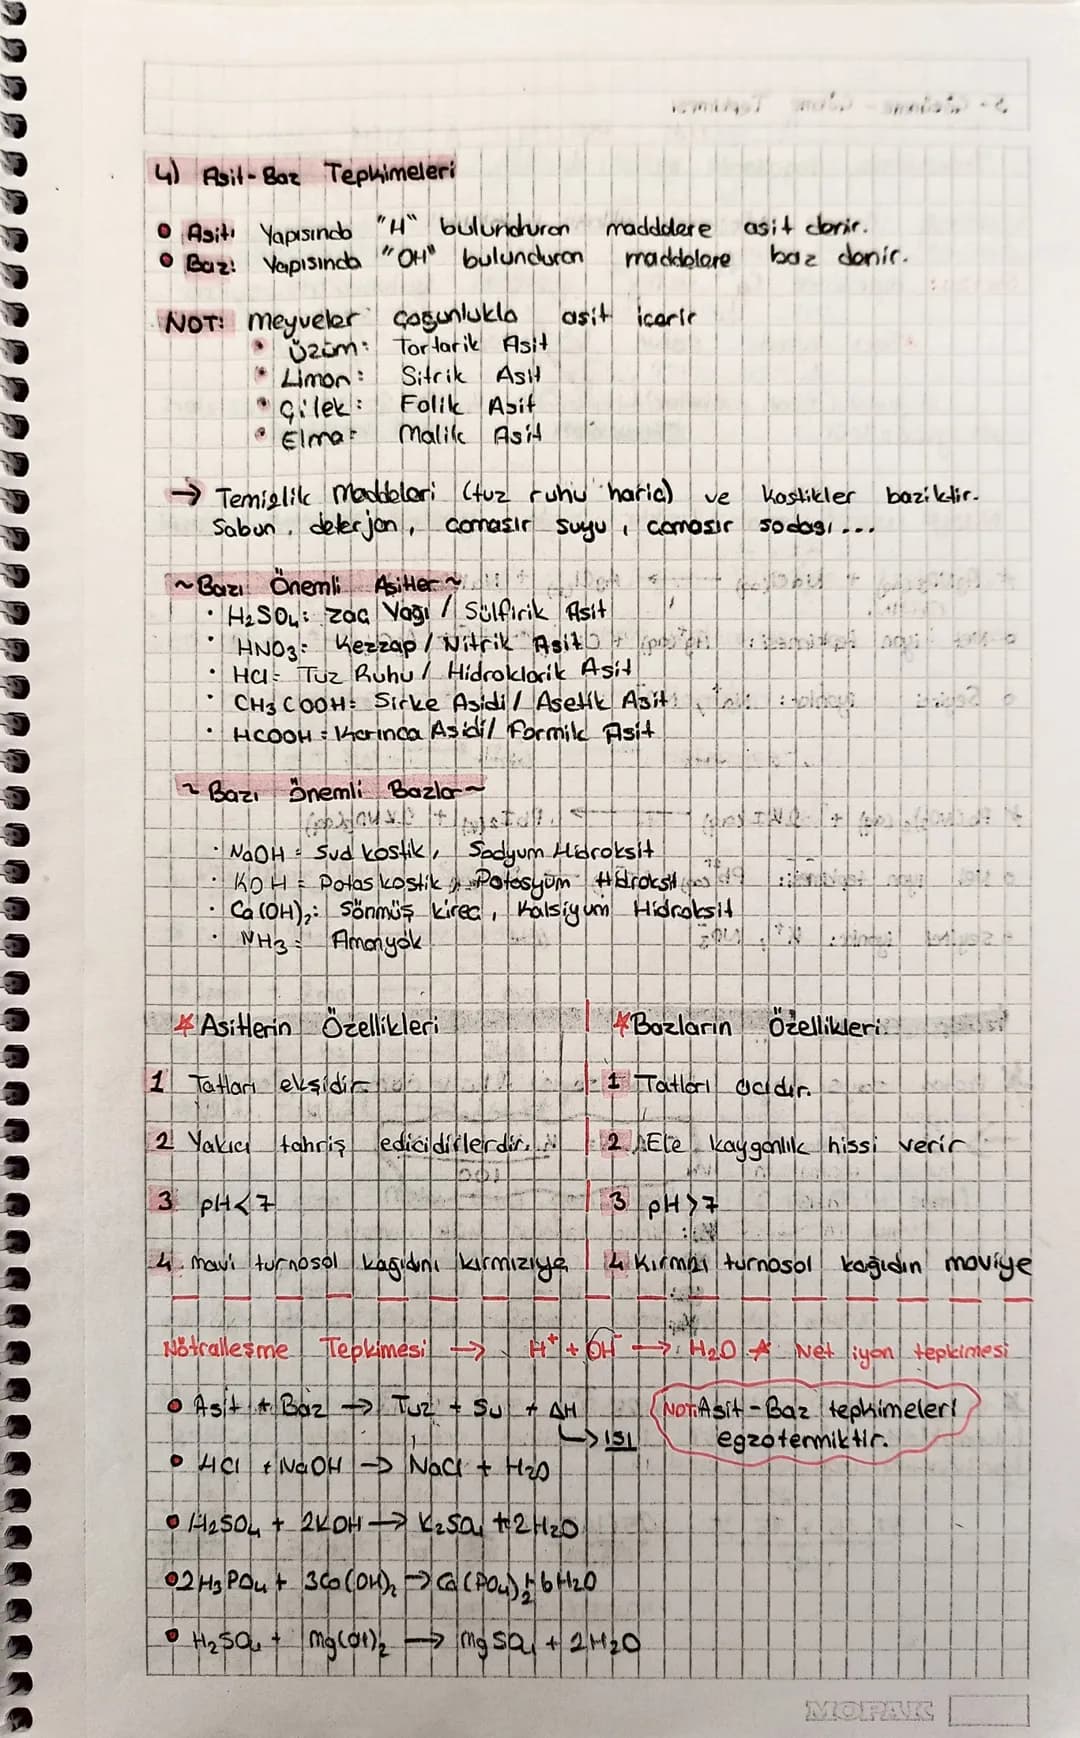 4) Asit-Baz Tepkimeleri
Asit: Yapısında "H" bulunduran maddelere asit denir.
Baz: Yapısında "OH" bulunduran maddelere baz denir.
NOT: meyveler çoğunlukla asit içerir
Üzüm: Tartarik Asit
Limon: Sitrik Asit
Çilek: Folik Asit
Elma: Malik Asit
→ Temizlik Maddeleri (tuz ruhu hariç) ve kostikler baziktir.
Sabun, deterjan, çamaşır suyu, çamaşır sodası...
~Bazı Önemli Asitler~
• H₂SO₄: Zaç Yağı / Sülfirik Asit
• HNO₃: Kezzap / Nitrik Asit
• HCl: Tuz Ruhu / Hidroklorik Asit
• CH₃COOH: Sirke Asidi / Asetik Asit
• HCOOH: Karınca Asidi / Formik Asit
~Bazı Önemli Bazlar~
• NaOH: Sud kostik, Sodyum Hidroksit
• KOH: Potas kostik, Potasyum Hidroksit
• Ca(OH)₂: Sönmüş kireç, Kalsiyum Hidroksit
• NH₃: Amonyak
Asitlerin Özellikleri
1 Tatları ekşidir
2 Yakıcı tahriş edicidirlerdir.
3 pH<7
4. mavi turnosol kağıdını kırmızıya
Bazların Özellikleri.
1 Tatları acıdır.
2 Ele kayganlık hissi verir
3 pH>7
4 Kırmızı turnosol kağıdın maviye
Nötralleşme Tepkimesi → H⁺ + OH⁻ → H₂O ★ Net iyon tepkimesi
Asit + Baz → Tuz + Su + ΔH
↳ ISI
NOT: Asit-Baz tepkimeleri
egzotermiktir.
HCl + NaOH → NaCl + H₂O
H₂SO₄ + 2KOH → K₂SO₄ + 2H₂O
2H₃PO₄ + 3Ca(OH)₂ → Ca(PO₄)₂ + 6H₂O
H₂SO₄ + Mg(OH)₂ → MgSO₄ + 2H₂O
MOPAK